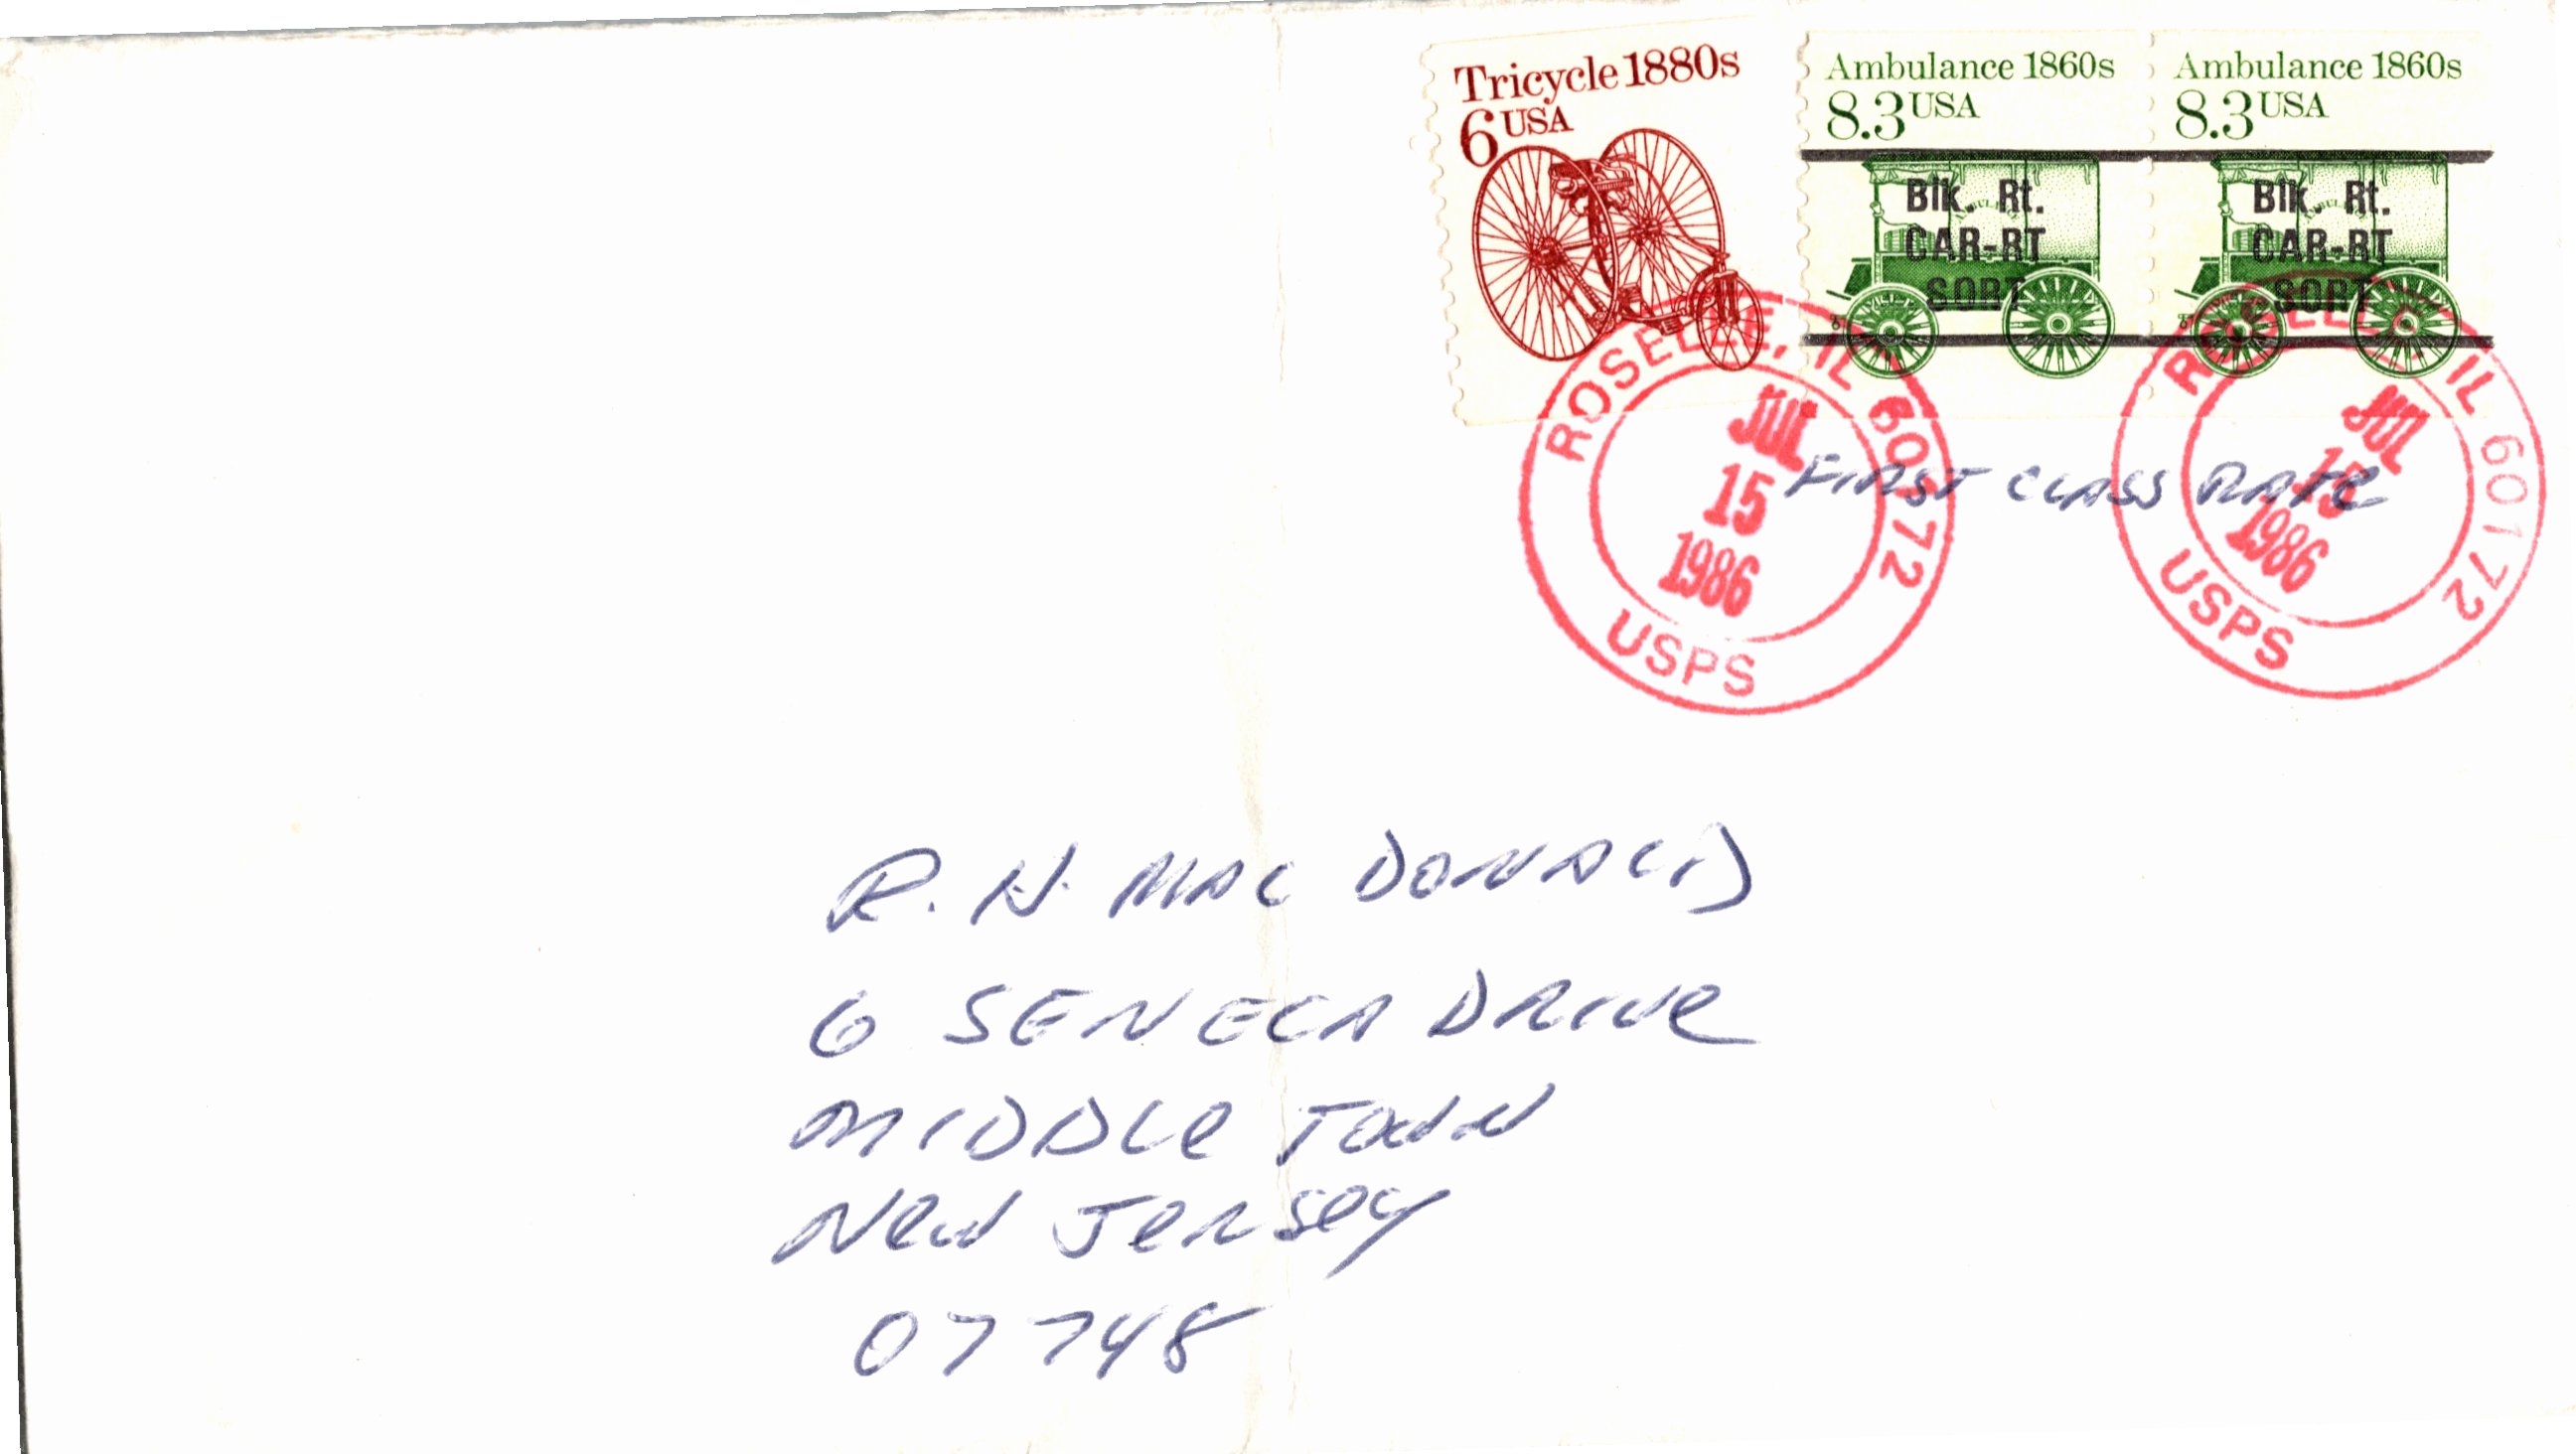 Tricycle 1880s
6 USA
Ambulance 1860s
8.3 USA
Blk. Rt.
CAR-RT
SORT
Ambulance 1860s
8.3 USA
Blk. Rt.
CAR-RT
SORT
ROSELLE, IL 60172
JUL
15
1986
USPS
ROSELLE, IL 60172
JUL
15
1986
USPS
FIRST CLASS RATE
R. N. MAC DONALD
6 SENECA DRIVE
MIDDLE TOWN
NEW JERSEY
07748